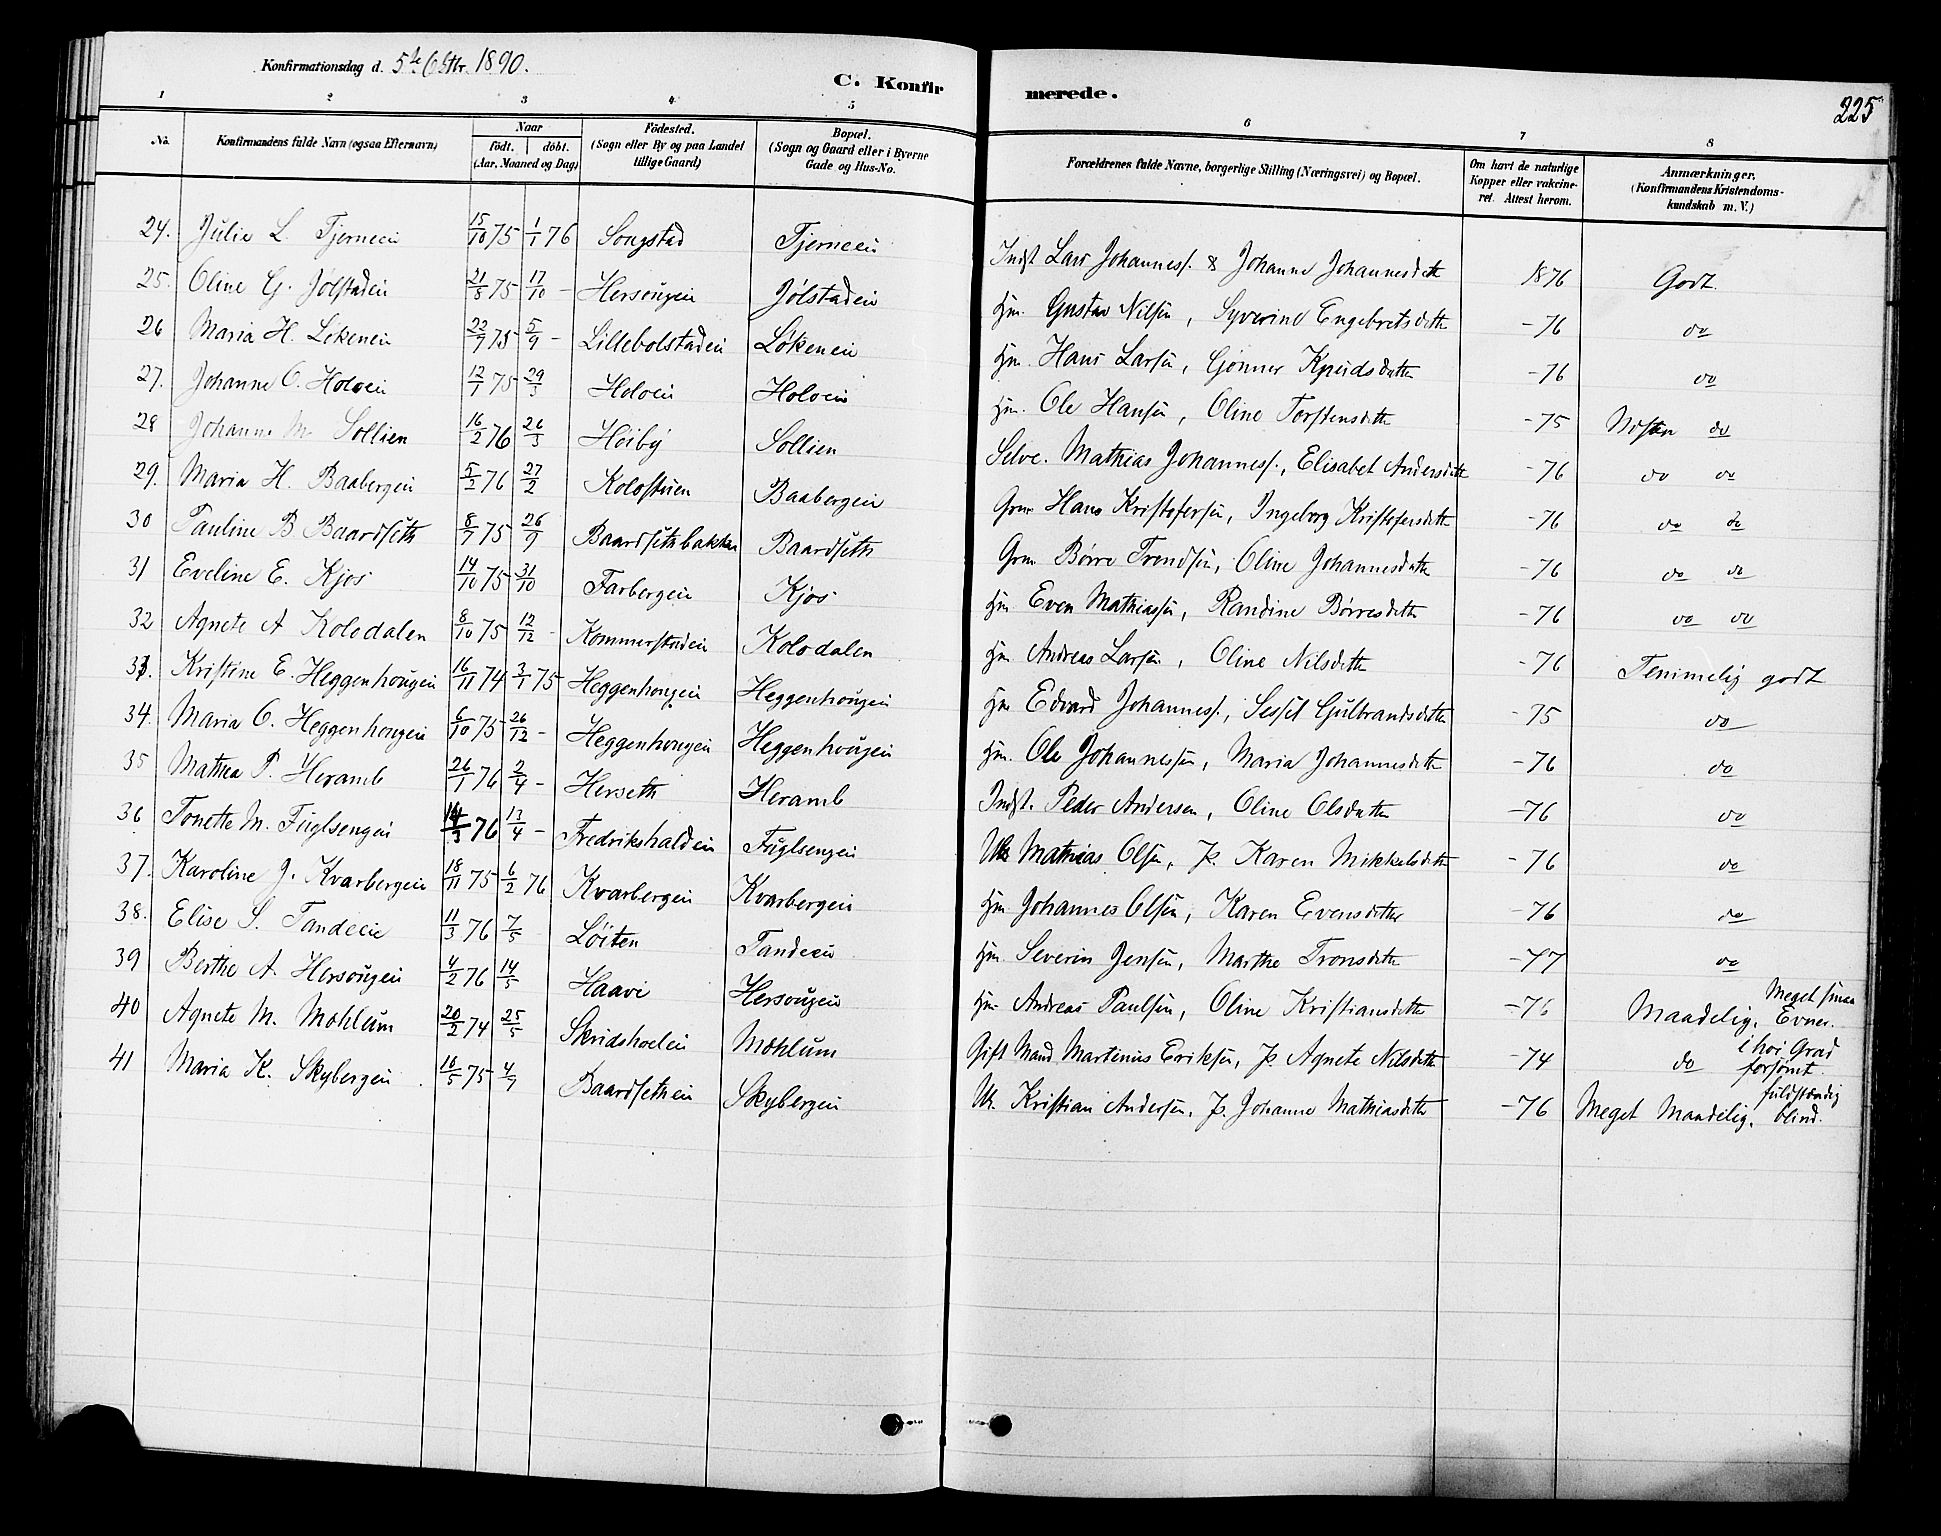 Konfirmationsdag d. 5te Oktbr. 1890.
C. Konfirmerede.
225
1 2 3 4 5 6 7 8
No. Konfirmandens fulde Navn (ogsaa Efternavn) Naar födt. döbt. (Aar, Maaned og Dag) Födested. (Sogn eller By og paa Landet tillige Gaard) Bopæl. (Sogn og Gaard eller i Byerne Gade og Hus-No. Forældrenes fulde Navne, borgerlige Stilling (Næringsvei) og Bopæl. Om havt de naturlige Kopper eller vakcineret. Attest herom. Anmærkninger. (Konfirmandens Kristendomskundskab m. V.)
24. Julie L. Tjerneein 15/10 75 1/1 76 Songstad Tjerneein Indst Lars Johanness. & Johanne Johannesdatter 1876 Godt
25. Oline G. Jølstadein 21/8 75 17/10 - Hersougein Jølstadein Hm. Gustav Nilsen, Syverine Engebretsdatter -76 do
26 Maria H. Lökenein 22/7 75 5/9 - Lillebolstadein Lökenein Hm. Hans Larsen, Gjönner Knudsdatter -76 do
27. Johanne O. Holoein 12/1 75 29/3 Holoein Holoein Hm. Ole Hansen, Oline Torstensdatter -75 Næsten do
28 Johanne M. Sollien 16/2 76 26/3 Höiby Sollien Selve. Mathias Johanness., Elisabet Andersdatter -76 do do
29. Maria H. Baabergein 5/2 76 27/2 Kolostuen Baabergein Grm Hans Kristofersen, Ingeborg Kristofersdatter -76 do do
30 Pauline B Baardseth 8/7 75 26/9 Baardsethbakken Baardseth Grm. Börre Trondsen, Oline Johannesdatter -76 do do
31 Eveline E. Kjos 14/10 75 31/10 Farbergein Kjos Hm Even Mathiassen, Randine Börresdatter -76 do do
32 Agnete A Kolodalen 8/10 75 12/12 - Kommerstadein Kolodalen Hm Andreas Larsen, Oline Nilsdatter -76 Temmelig godt
33. Kristine E. Heggenhougein 16/11 74 3/1 75 Heggenhougein Heggenhougein Hm Edvard Johanness., Sissil Gulbrandsdatter -75 do
34. Maria O. Heggenhougein 6/10 75 26/12 - Heggenhougein Heggenhougein Hm. Ole Johannessen, Maria Johannesdatter -76 do
35 Mathea P. Heramb 26/1 76 2/4 - Herseth Heramb Indst. Peder Andersen, Oline Olsdatter -76 do
36 Tonette M. Fuglsengein 14/3 76 13/4 - Fredrikshaldein Fuglsengein Uk Mathias Olsen, P. Karen Mikkelsdatter -76 do
37. Karoline J. Kvarbergein 18/11 75 6/2 76 Kvarbergein Kvarbergein Hm. Johannes Olsen, Karen Evensdatter -76 do
38. Elise S. Tandeein 11/3 76 7/5 Löiten Tandeein Hm. Severin Jensen, Marthe Tronsdatter -77 do
39 Berthe A. Hersougein 4/2 76 14/5 Haavi Hersougein Hm Andreas Paulsen, Oline Kristiansdatter -76 Maadelig. Meget smaa Evner.
40 Agnete M. Mohlum 20/2 74 25/5 Skridshoelein Mohlum Gift Mand Martinus Eriksen, P. Agnete Nilsdatter -74 do i höi Grad forsömt.
41 Maria K. Skybergein 16/5 75 4/7 Baardsethein Skybergein Uk. Kristian Andersen, P. Johanne Mathiasdatter -76 Meget Maadelig. fuldstændig blind.